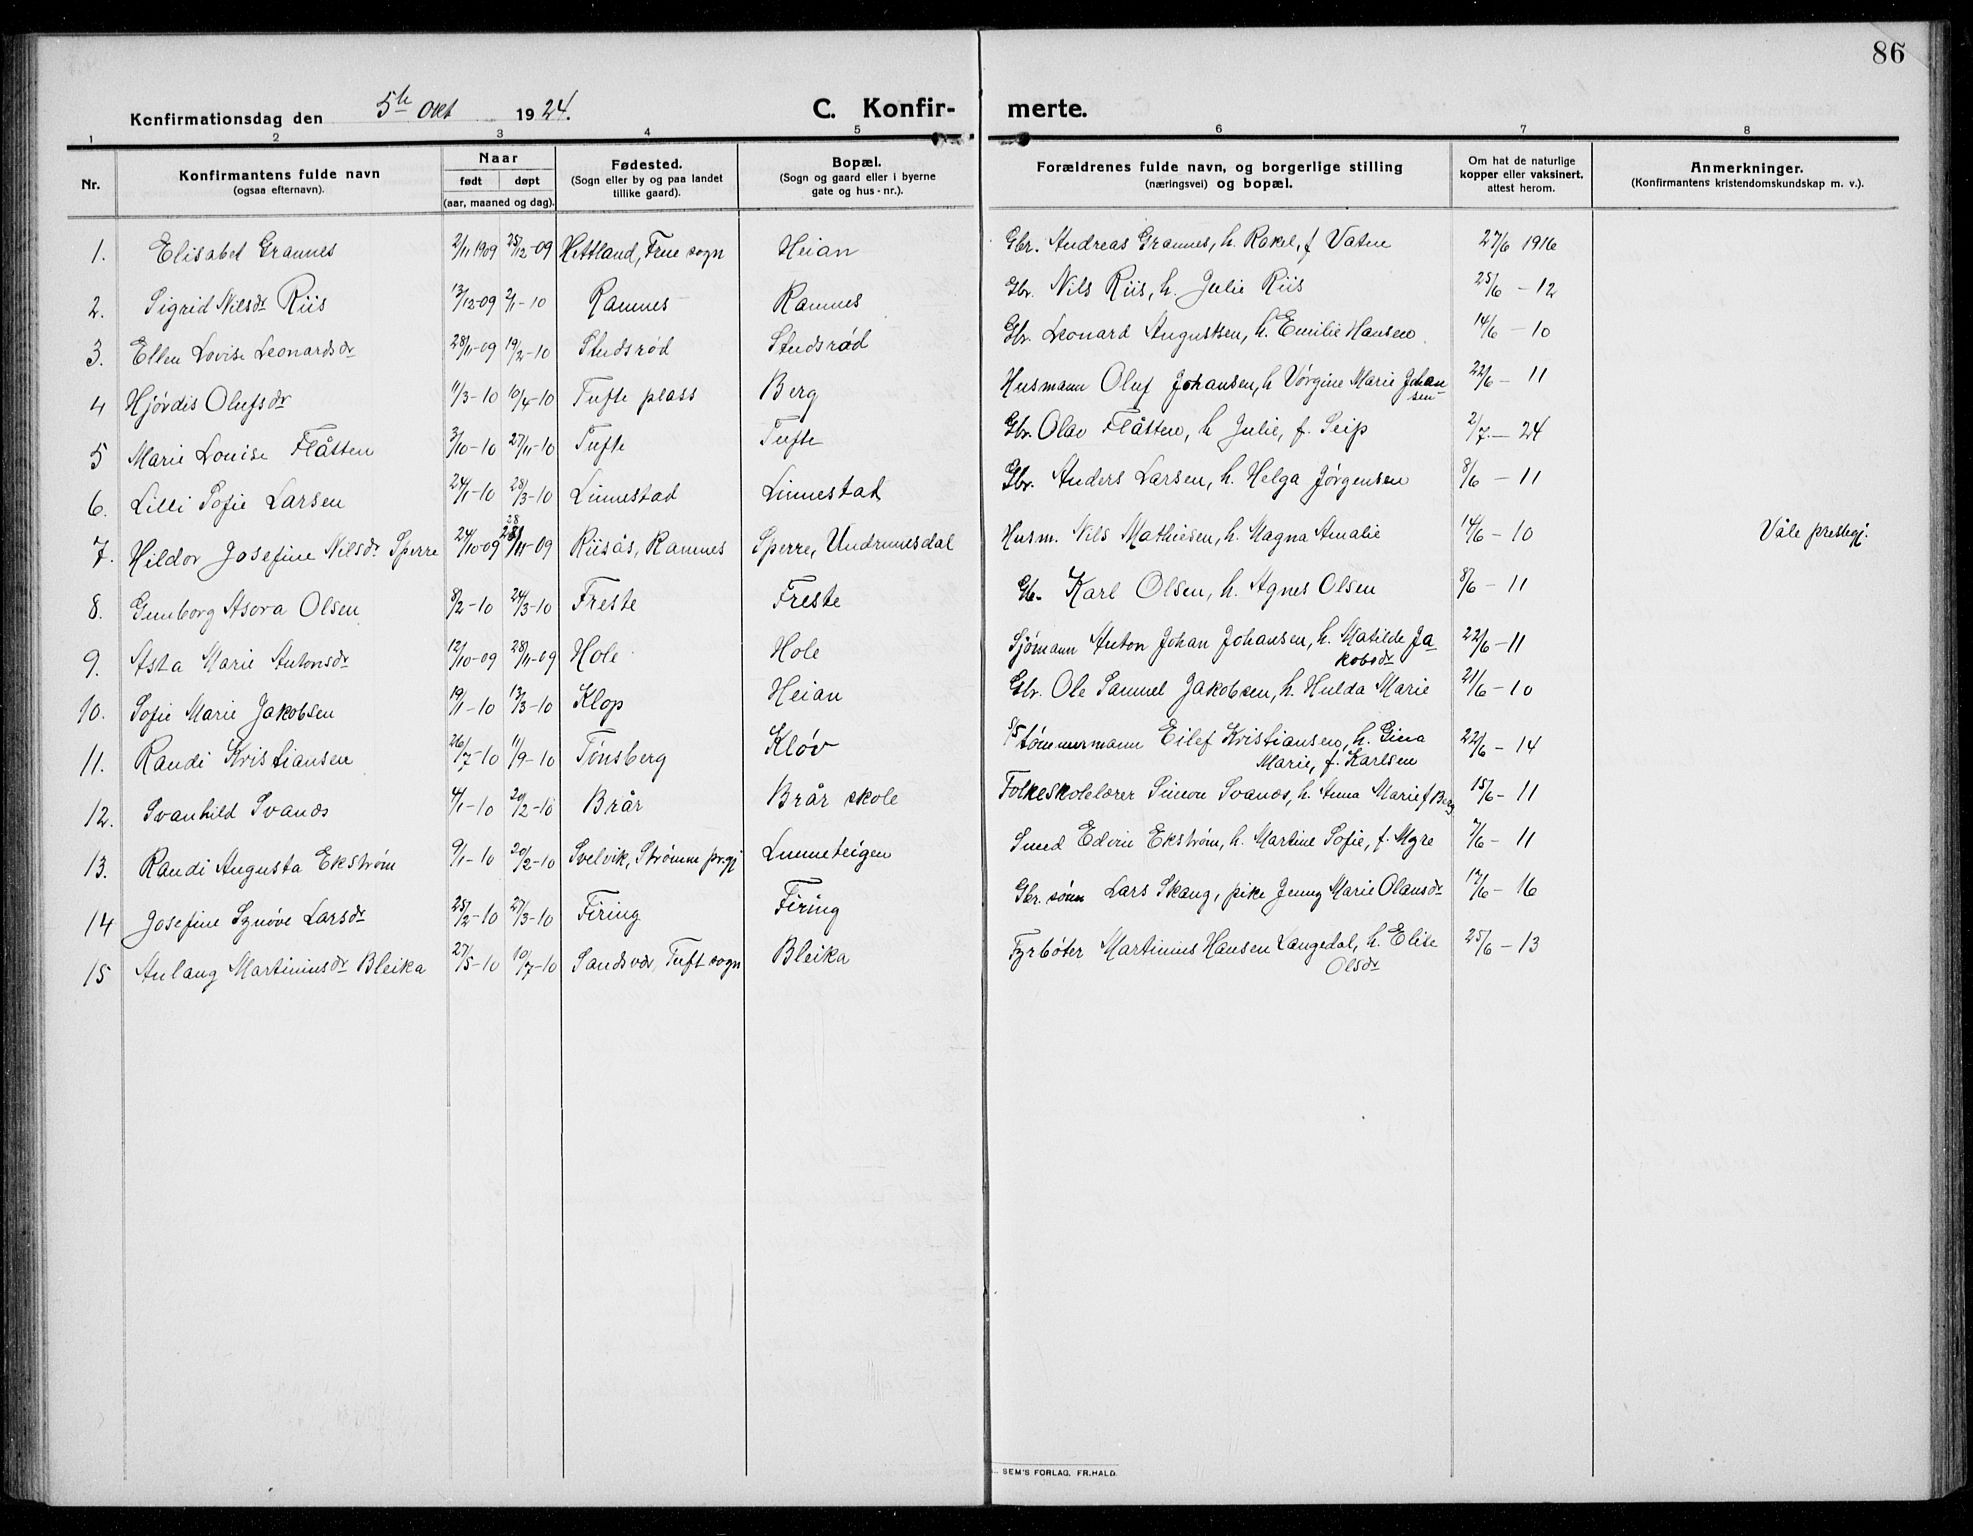 86
Konfirmationsdag den 5te Okt 1924. C. Konfir- merte.
1 2 3 4 5 6 7 8
Nr. Konfirmantens fulde navn (ogsaa efternavn). Naar født døpt (aar, maaned og dag). Fødested. (Sogn eller by og paa landet tillike gaard). Bopæl. (Sogn og gaard eller i byerne gate og hus-nr.). Forældrenes fulde navn, og borgerlige stilling (næringsvei) og bopæl. Om hat de naturlige kopper eller vaksinert, attest herom. Anmerkninger. (Konfirmantens kristendomskundskap m. v.).
1. Elisabet Grannes 2/11 1909 25/12-09 Hettland, Frue sogn Heian Gbr. Andreas Grannes, h. Rakel, f Vatne 27/6 1916
2. Sigrid Nilsdr Riis 13/12-09 2/1-10 Ramnes Ramnes Gbr. Nils Riis, h. Julie Riis 25/6-12
3. Ellen Lovise Leonardsdr 28/11-09 19/2-10 Studsrød Studsrød Gbr. Leonard Augustsen, h. Emilie Hansen 14/6-10
4 Hjørdis Olufsdr 11/3-10 10/4-10 Tufte plass Berg Husmann Oluf Johansen, h Vørgine Marie Johansen 22/6-11
5 Marie Louise Flåtten 3/10-10 27/11-10 Tufte Tufte Gbr. Olav Flåtten, h Julie, f. Seip 2/7-24
6. Lilli Sofie Larsen 24/1-10 28/3-10 Linnestad Linnestad Gbr. Anders Larsen, h. Helga Jørgensen 8/6-11
7. Hildor Josefine Nilsdr Sperre 24/10-09 28/11-09 Riisås, Ramnes Sperre, Undrumsdal Husm. Nils Mathisen, h. Magna Amalie 14/6-10 Våle prestegj.
8. Gunborg Asora Olsen 8/2-10 24/3-10 Freste Freste Gb. Karl Olsen, h. Agnes Olsen 8/6-11
9. Asta Marie Antonsdr 12/10-09 28/11-09 Hole Hole Sjømann Anton Johan Johansen, h. Matilde Ja
kobsdr 22/6-11
10. Sofie Marie Jakobsen 19/1-10 13/3-10 Klop Heian Gbr. Ole Samuel Jakobsen, h. Hulda Marie 21/6-10
11. Randi Kristiansen 26/7-10 11/9-10 Tønsberg Kløv tømmermann Eilef Kristiansen, h. Gina
Marie, f. Karlsen 22/6-14
12. Svanhild Svanøs 4/1-10 20/2-10 Brår Brår skole Folkeskolelærer Simon Svanøs, h. Anna Marie f Berg 15/6-11
13. Randi Augusta Ekstrøm 9/1-10 20/2-10 Svelvik, Strømm pr.gj Linneteigen Smed Edvin Ekstrøm, h. Martine Sofie, f. Myre 7/6-11
14 Josefine Synøve Larsdr 25/2-10 27/3-10 Firing Firing Gbr. sønn Lars Skaug, pike Jenny Marie Olausdr 17/6-16
15 Aulaug Martiniusdr Bleika 27/5-10 10/7-10 Sandsvær, Tuft sogn Bleika Fyrbøter Martinius Hansen Langedal, h. Elise
Olsdr 25/6-13
SEM'S FORLAG, FR.HALD.